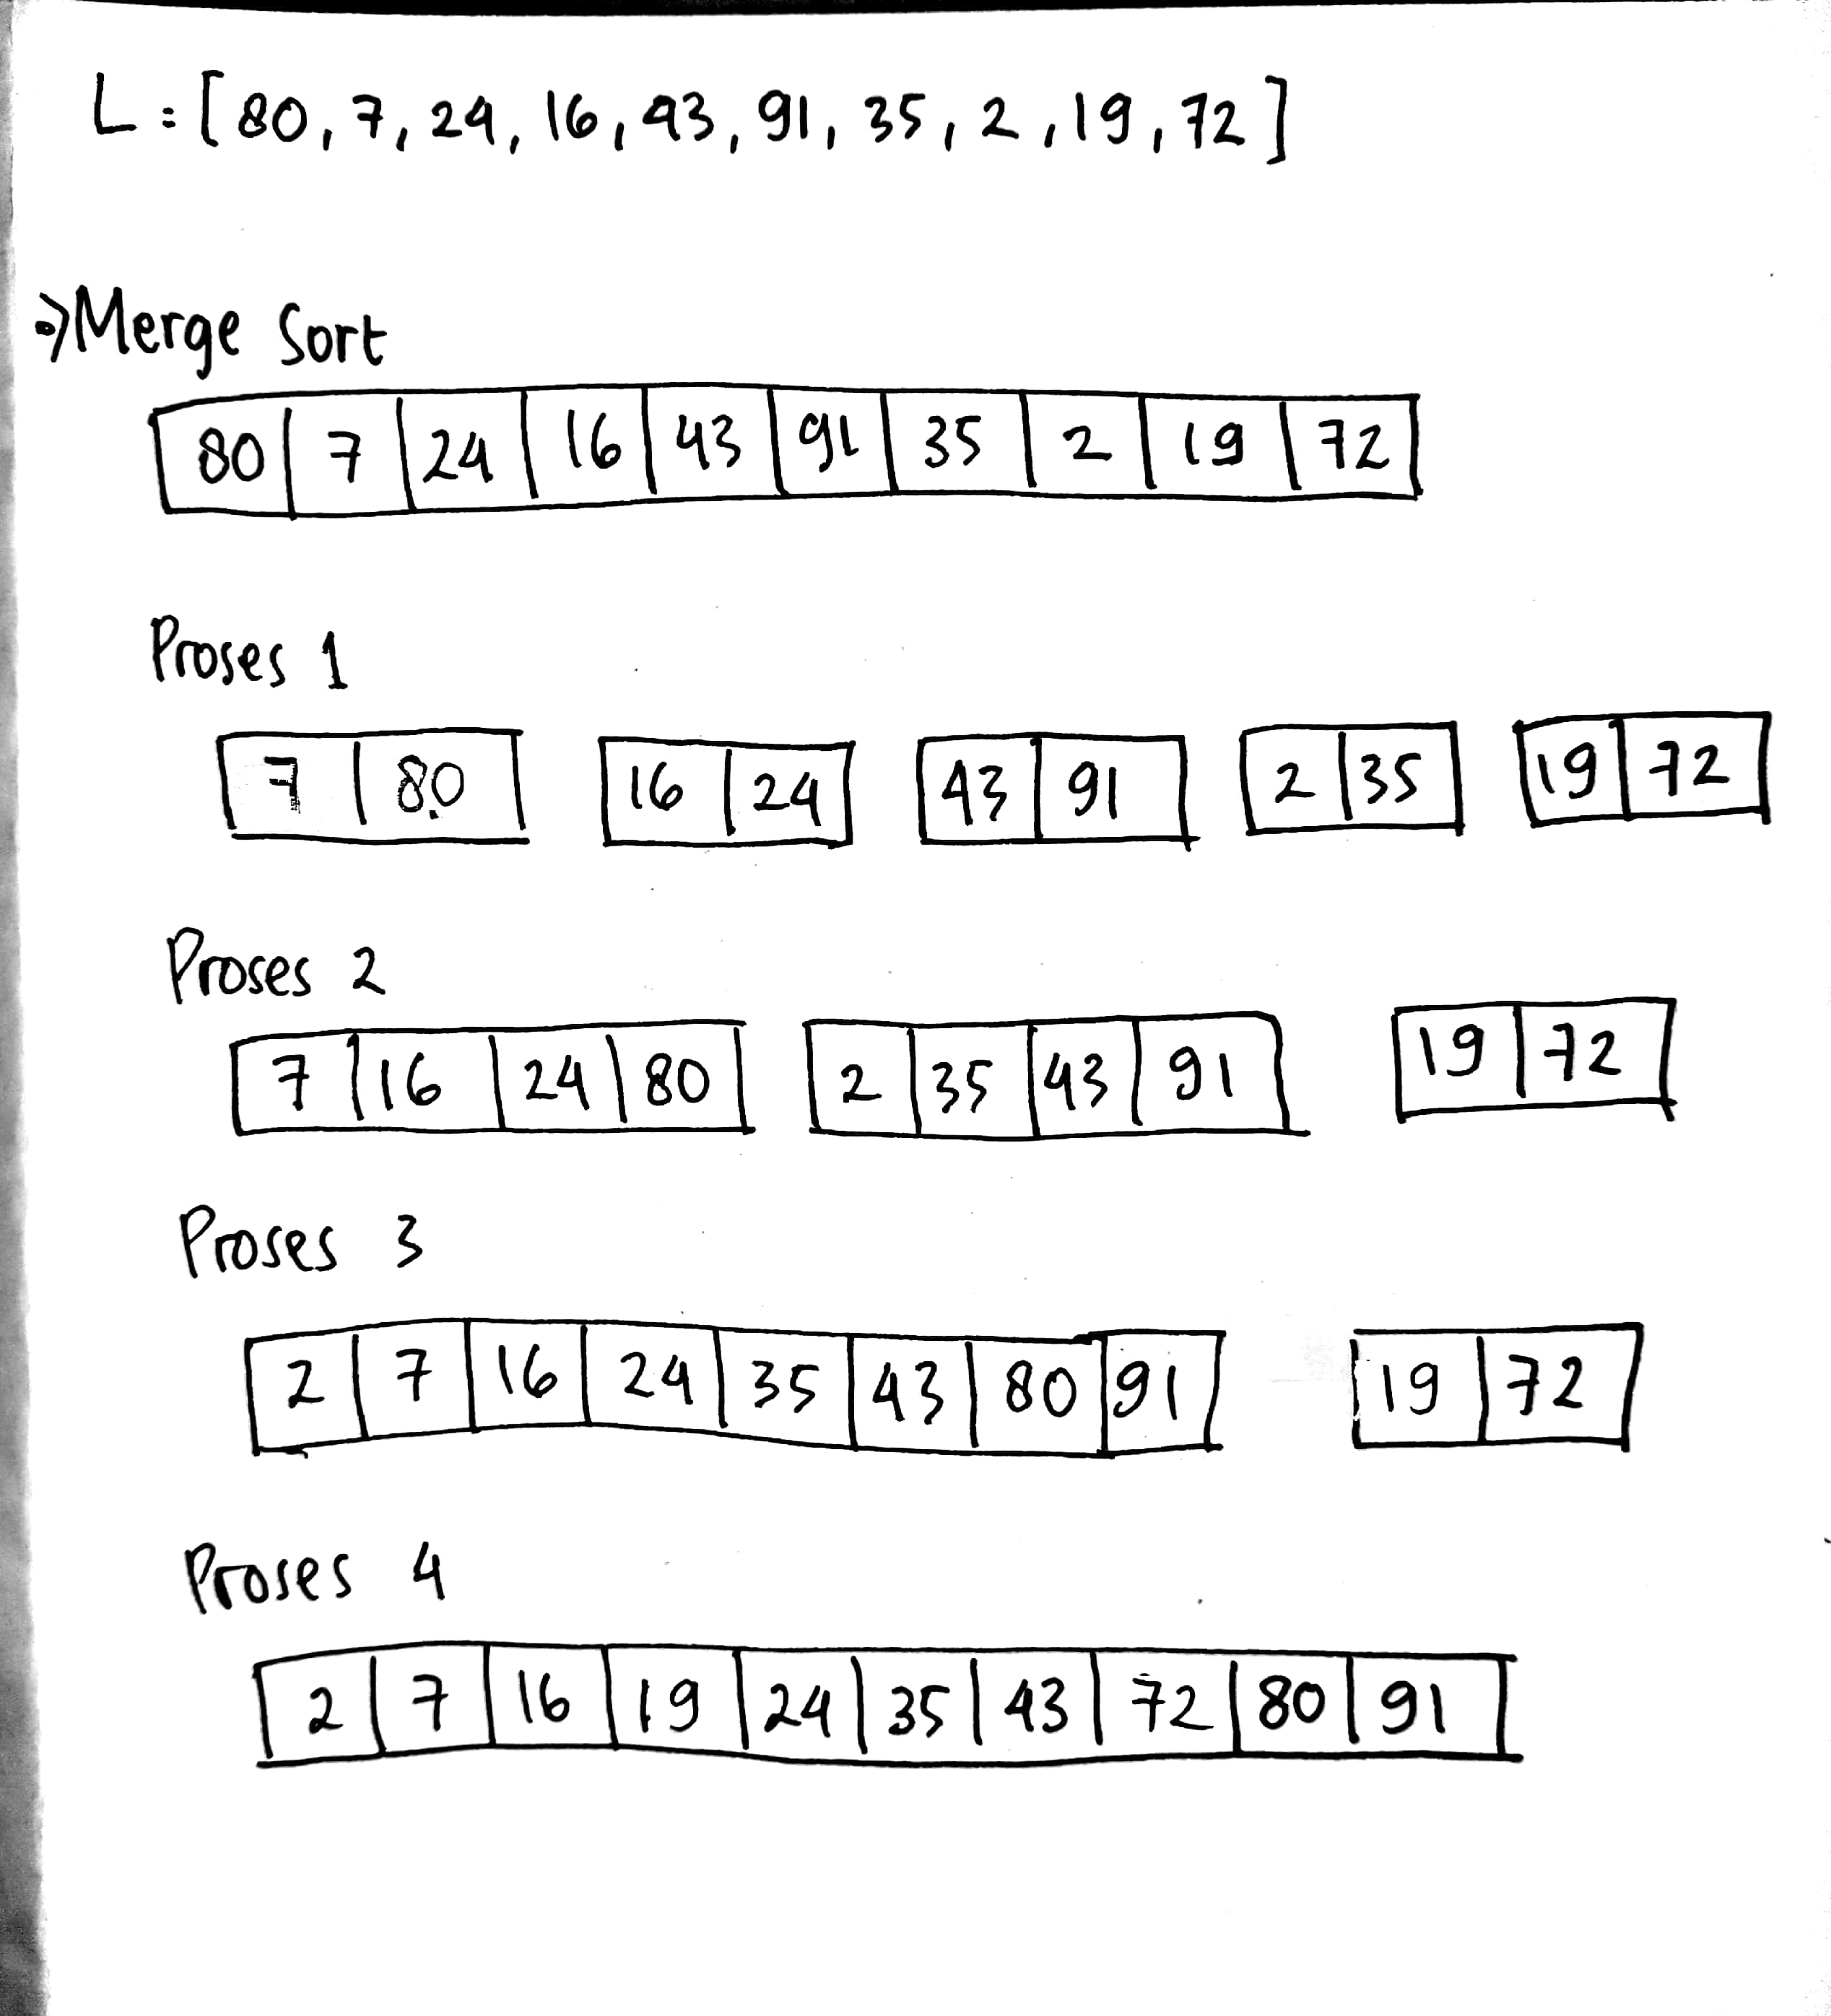 L = [80, 7, 24, 16, 43, 91, 35, 2, 19, 72]
⇒ Merge Sort
80 | 7 | 24 | 16 | 43 | 91 | 35 | 2 | 19 | 72
Proses 1
7 | 80   16 | 24   43 | 91   2 | 35   19 | 72
Proses 2
7 | 16 | 24 | 80   2 | 35 | 43 | 91   19 | 72
Proses 3
2 | 7 | 16 | 24 | 35 | 43 | 80 | 91   19 | 72
Proses 4
2 | 7 | 16 | 19 | 24 | 35 | 43 | 72 | 80 | 91